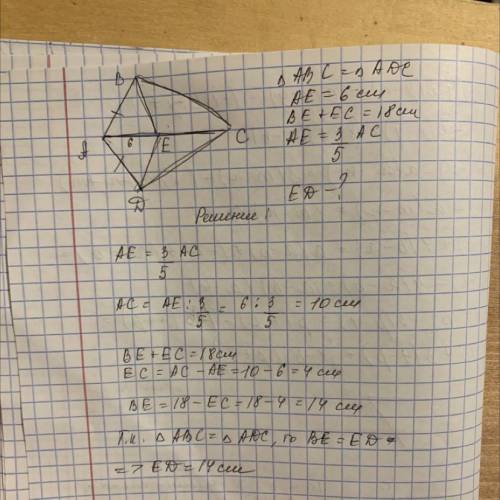 B
A
6
E
C
D
△ABC = △ADC
AE = 6 см
BE + EC = 18 см
AE = 3/5 AC
ED - ?
Решение:
AE = 3/5 AC
AC = AE : 3/5 = 6 : 3/5 = 10 см
BE + EC = 18 см
EC = AC - AE = 10 - 6 = 4 см
BE = 18 - EC = 18 - 4 = 14 см
Т.к. △ABC = △ADC, то BE = ED =
=> ED = 14 см